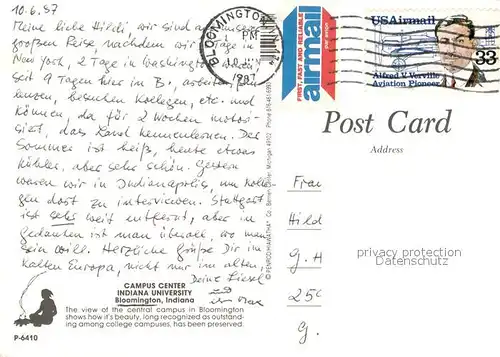 10.6.87
Meine liebe Hildi, wir sind auf unserer
großen Reise nachdem wir 3 Tage in
New York, 2 Tage in Washington waren
seit 9 Tagen hier in B., arbeiten,
besuchen Kollegen, etc. und
können, da für 2 Wochen motori-
siert, das Land kennenlernen. Der
Sommer ist heiß, heute etwas
kühler, aber sehr schön. Gestern
waren wir in Indianapolis, um Kolle-
gen dort zu interviewen. Stuttgart
ist sehr weit entfernt, aber in
Gedanken ist man überall, wo man
sein will. Herzliche Grüße Dir im
kalten Europa, nicht nur im alten,
Deine Liesel
CAMPUS CENTER
INDIANA UNIVERSITY
Bloomington, Indiana
The view of the central campus in Bloomington
shows how it's beauty, long recognized as outstand-
ing among college campuses, has been preserved.
P-6410
BLOOMINGTON
PM
10 JUN
1987
FIRST, FAST AND RELIABLE
airmail
par avion
USAirmail
33
Alfred V. Verville
Aviation Pioneer
Post Card
Address
Frau
Hild
G. H
250
G.
privacy protection
Datenschutz